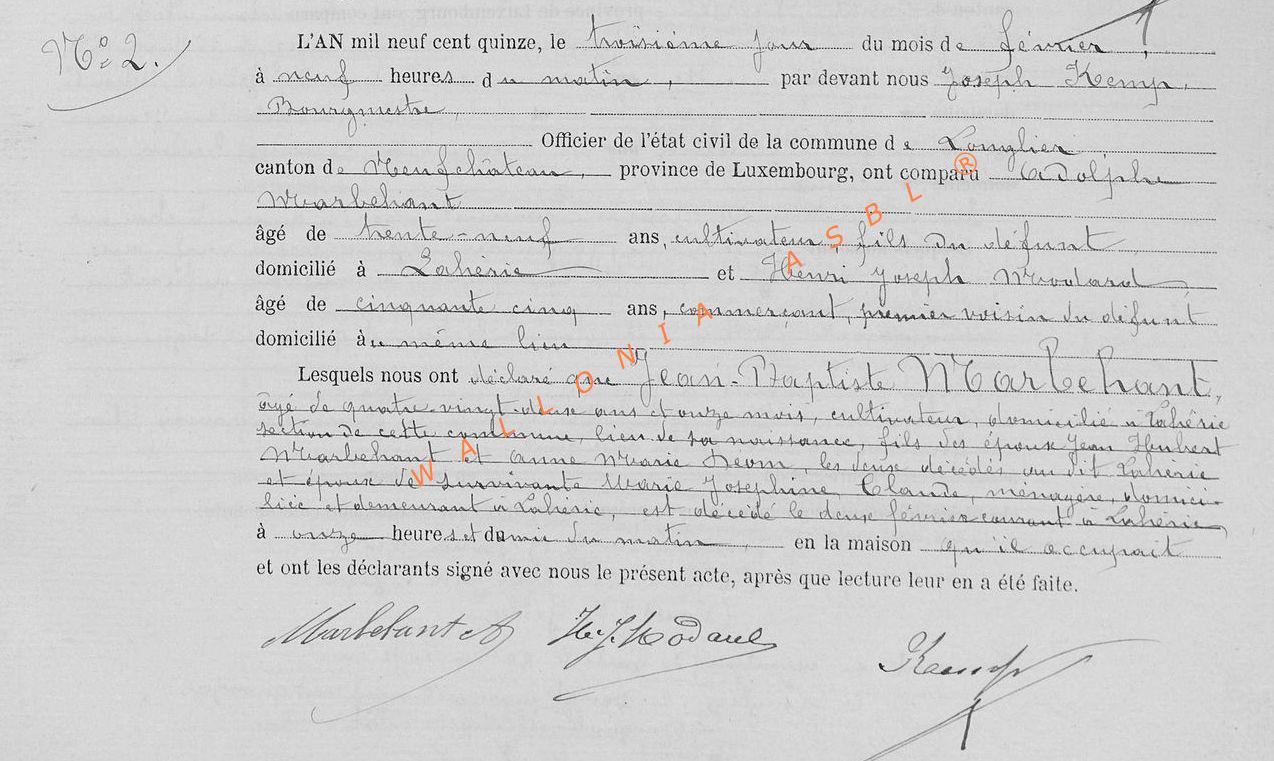 N° 2.
L'AN mil neuf cent quinze, le troisième jour du mois de février,
à neuf heures du matin, par devant nous Joseph Kemp,
Bourgmestre,
Officier de l'état civil de la commune de Longlier,
canton de Neufchâteau, province de Luxembourg, ont comparu Adolphe
Marbehant
âgé de trente-neuf ans, cultivateur, fils du défunt
domicilié à Lahérie et Henri Joseph Modard,
âgé de cinquante cinq ans, commerçant, premier voisin du défunt
domicilié au même lieu
Lesquels nous ont déclaré que Jean-Baptiste Marbehant,
âgé de quatre vingt-deux ans et onze mois, cultivateur, domicilié à Lahérie
section de cette commune, lieu de sa naissance, fils des époux Jean Hubert
Marbehant et Anne Marie Déom, les deux décédés au dit Lahérie
et époux de survivante Marie Josephine Claude, ménagère, domici-
liée et demeurant à Lahérie, est décédé le deux février courant à Lahérie,
à onze heures et demie du matin, en la maison qu'il occupait
et ont les déclarants signé avec nous le présent acte, après que lecture leur en a été faite.
Marbehant A H.J. Modard
Kemp
WALLONIA ASBL ®